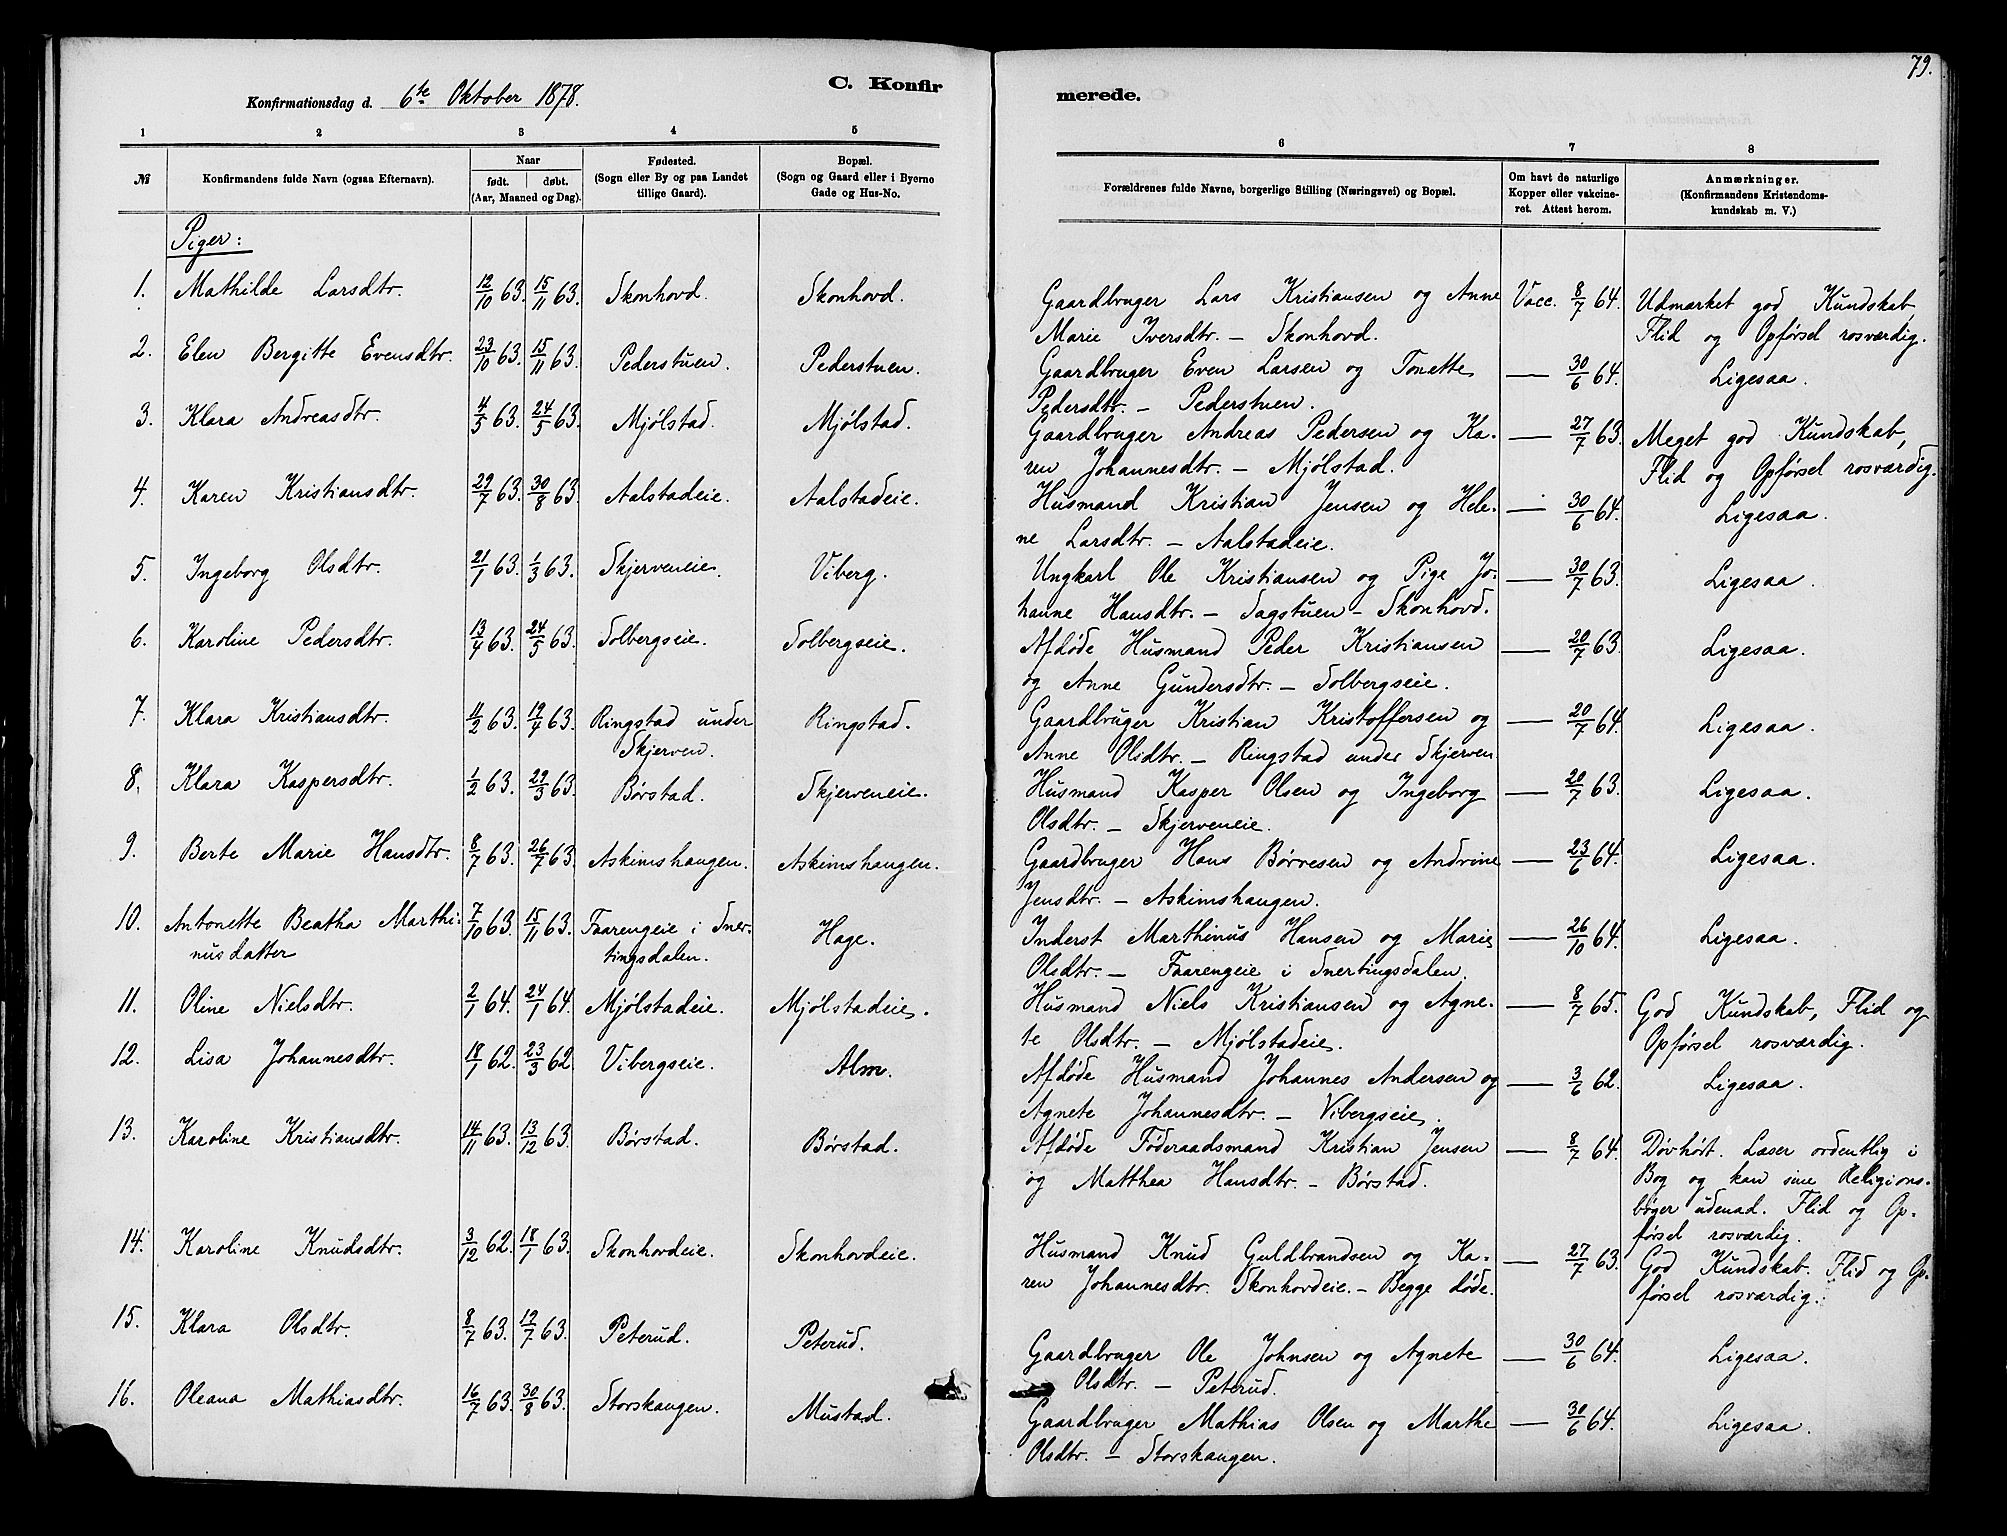 79.
Konfirmationsdag d. 6te Oktober 1878.
C. Konfirmerede.
1 2 3 4 5 6 7 8
№ Konfirmandens fulde Navn (ogsaa Efternavn). Naar født. døbt. (Aar, Maaned og Dag). Fødested. (Sogn eller By og paa Landet tillige Gaard). Bopæl. (Sogn og Gaard eller i Byerne Gade og Hus-No. Forældrenes fulde Navne, borgerlige Stilling (Næringsvei) og Bopæl. Om havt de naturlige Kopper eller vakcineret. Attest herom. Anmærkninger. (Konfirmandens Kristendomskundskab m. V.)
Piger:
1. Mathilde Larsdtr. 12/10 63. 15/11 63. Skonhovd. Skonhovd. Gaardbruger Lars Kristiansen og Anne Vacc. 8/7 64. Udmærket god Kundskab,
Marie Iversdtr. – Skonhovd. Flid og Opførsel rosværdig.
2. Elen Bergitte Evensdtr. 23/10 63. 15/11 63. Pederstuen. Pederstuen. Gaardbruger Even Larsen og Tonette — 30/6 64. Ligesaa.
Pedersdtr. – Pederstuen.
3. Klara Andreasdtr. 4/5 63. 24/5 63. Mjølstad. Mjølstad. Gaardbruger Andreas Pedersen og Ka- — 27/7 63. Meget god Kundskab,
ren Johannesdtr. – Mjølstad. Flid og Opførsel rosværdig.
4. Karen Kristiansdtr. 29/7 63. 30/8 63. Aalstadeie. Aalstadeie. Husmand Kristian Jensen og Hele- — 30/6 64. Ligesaa.
ne Larsdtr. – Aalstadeie.
5. Ingeborg Olsdtr. 21/1 63. 1/3 63. Skjerveneie. Viberg. Ungkarl Ole Kristiansen og Pige Jo- — 30/7 63. Ligesaa.
hanne Hansdtr. – Sagstuen – Skonhovd.
6. Karoline Pedersdtr. 13/4 63. 24/5 63. Solbergseie. Solbergseie. Afdøde Husmand Peder Kristiansen — 20/7 63. Ligesaa.
og Anne Gundersdtr. – Solbergseie.
7. Klara Kristiansdtr. 11/2 63. 19/4 63. Ringstad under Ringstad. Gaardbruger Kristian Kristoffersen og — 20/7 64. Ligesaa.
Skjerven. Anne Olsdtr. – Ringstad under Skjerven
8. Klara Kaspersdtr. 1/2 63. 29/3 63. Børstad. Skjerveneie. Husmand Kasper Olsen og Ingeborg — 20/7 63. Ligesaa.
Olsdtr. – Skjerveneie.
9. Berte Marie Hansdtr. 8/7 63. 26/7 63. Askimshaugen. Askimshaugen. Gaardbruger Hans Børresen og Andrine — 23/6 64. Ligesaa.
Jensdtr. – Askimshaugen.
10. Antonette Beatha Marthi- 7/10 63. 15/11 63. Faarengeie i Sner- Hage. Inderst Marthinus Hansen og Marie — 26/10 64. Ligesaa.
nusdatter tingsdalen. Olsdtr. – Faarengeie i Snertingsdalen.
11. Oline Nielsdtr. 2/1 64. 24/1 64. Mjølstadeie. Mjølstadeie. Husmand Niels Kristiansen og Agne- — 8/7 65. God Kundskab, Flid og
te Olsdtr. – Mjølstadeie. Opførsel rosværdig.
12. Lisa Johannesdtr. 18/1 62. 23/3 62. Vibergseie. Alm. Afdøde Husmand Johannes Andersen og — 3/6 62. Ligesaa.
Agnete Johannesdtr. – Vibergseie.
13. Karoline Kristiansdtr. 14/11 63. 13/12 63. Børstad. Børstad. Afdøde Føderaadsmand Kristian Jensen — 8/7 64. Døvhørt. Læser ordentlig i
og Matthea Hansdtr. – Børstad. Bog og kan sine Religions-
bøger udenad. Flid og Op-
førsel rosværdig.
14. Karoline Knudsdtr. 3/12 62. 18/1 63. Skonhovdeie. Skonhovdeie. Husmand Knud Guldbrandsen og Ka- — 27/7 63. God Kundskab. Flid og Op-
ren Johannesdtr. Skonhovdeie. – Begge døde. førsel rosværdig.
15. Klara Olsdtr. 8/7 63. 19/7 63. Peterud. Peterud. Gaardbruger Ole Johnsen og Agnete — 30/6 64. Ligesaa.
Olsdtr. – Peterud.
16. Oleana Mathiasdtr. 16/7 63. 30/8 63. Storskaugen. Mustad. Gaardbruger Mathias Olsen og Marthe — 30/6 64. Ligesaa.
Olsdtr. – Storskaugen.